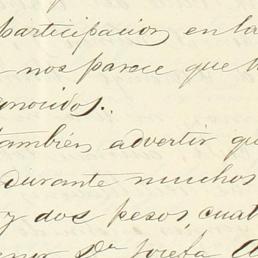 participacion en la
nos parece que
nocidos..
tambien advertir qu
durante muchos
y dos pesos, cuat
Dª Josefa